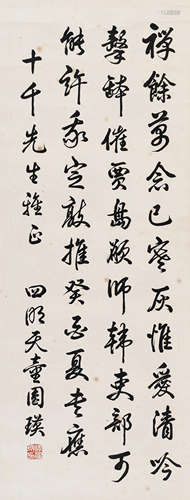 禪餘萬念已寒灰惟愛清吟
擊鉢催賈島願師韓吏部可
能許我定敲推癸酉夏書應
十千先生雅正 四明天童圓瑛